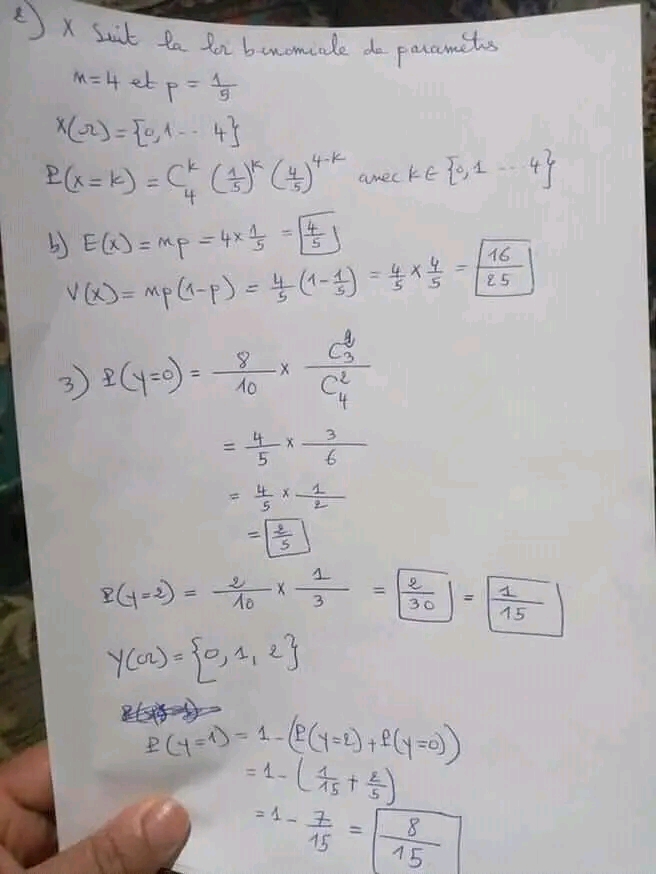 2) X suit la loi binomiale de paramètrs
n=4 et p = 1/5
X(Ω) = {0,1 ... 4}
P(X=k) = C₄ᵏ (1/5)ᵏ (4/5)⁴⁻ᵏ avec k ∈ {0,1 ... 4}
b) E(X) = np = 4 × 1/5 = 4/5
V(X) = np(1-p) = 4/5 (1-1/5) = 4/5 × 4/5 = 16/25
3) P(Y=0) = 8/10 × C₃²/C₄²
= 4/5 × 3/6
= 4/5 × 1/2
= 2/5
P(Y=2) = 2/10 × 1/3 = 2/30 = 1/15
Y(Ω) = {0, 1, 2}
P(Y=1) = 1 - (P(Y=2) + P(Y=0))
= 1 - (1/15 + 2/5)
= 1 - 7/15 = 8/15